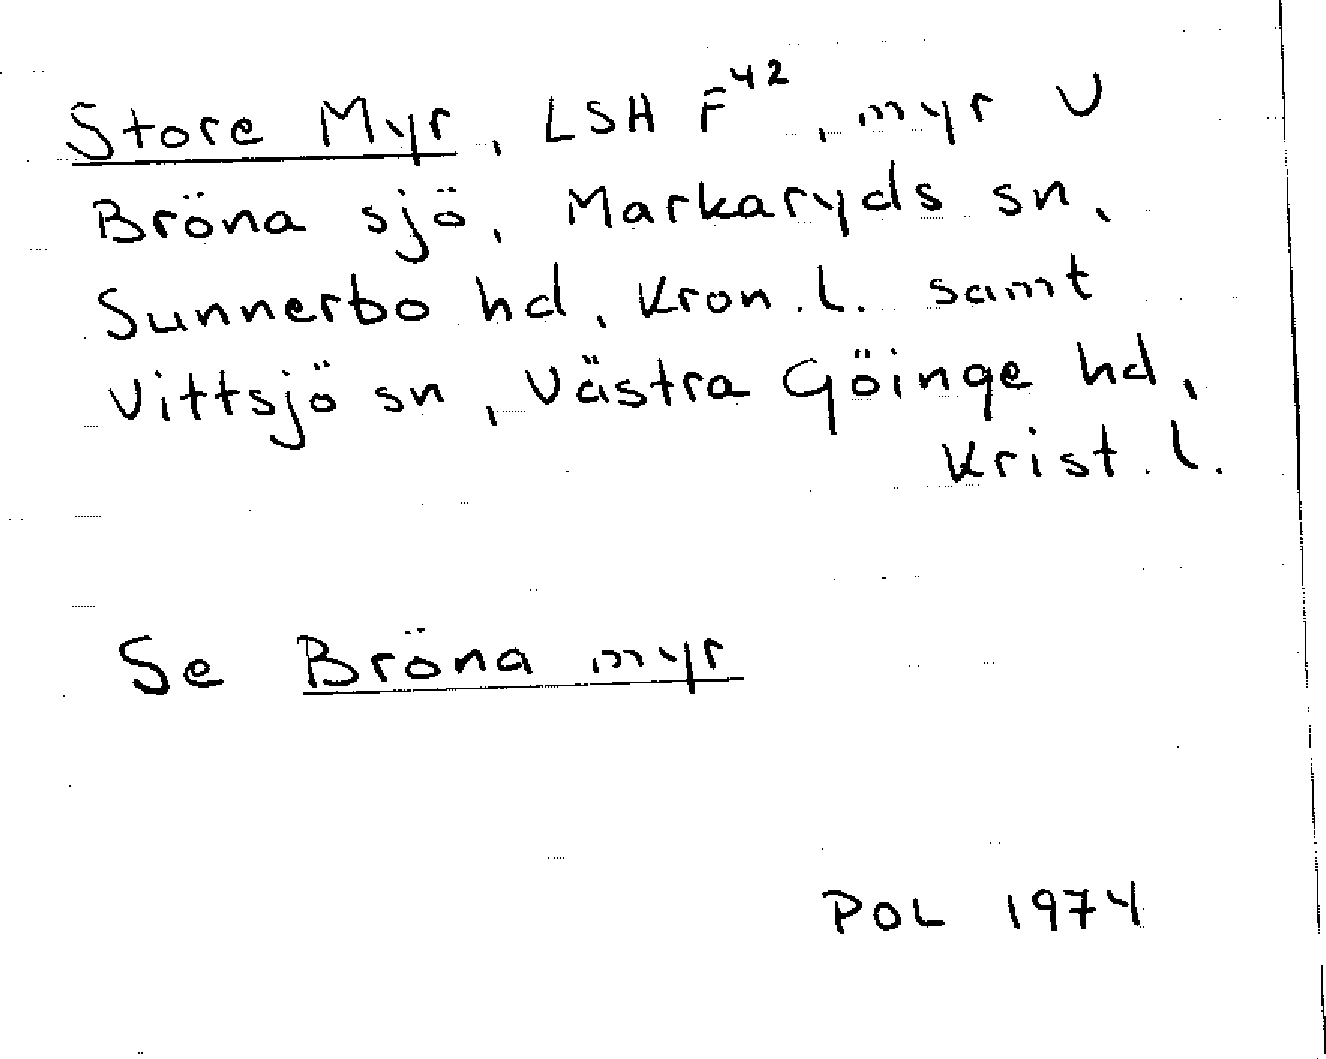 Store Myr, LSH F42, myr V
Bröna sjö, Markaryds sn,
Sunnerbo hd, Kron.l. samt
Vittsjö sn, Västra Göinge hd,
Krist.l.
Se Bröna myr
POL 1974